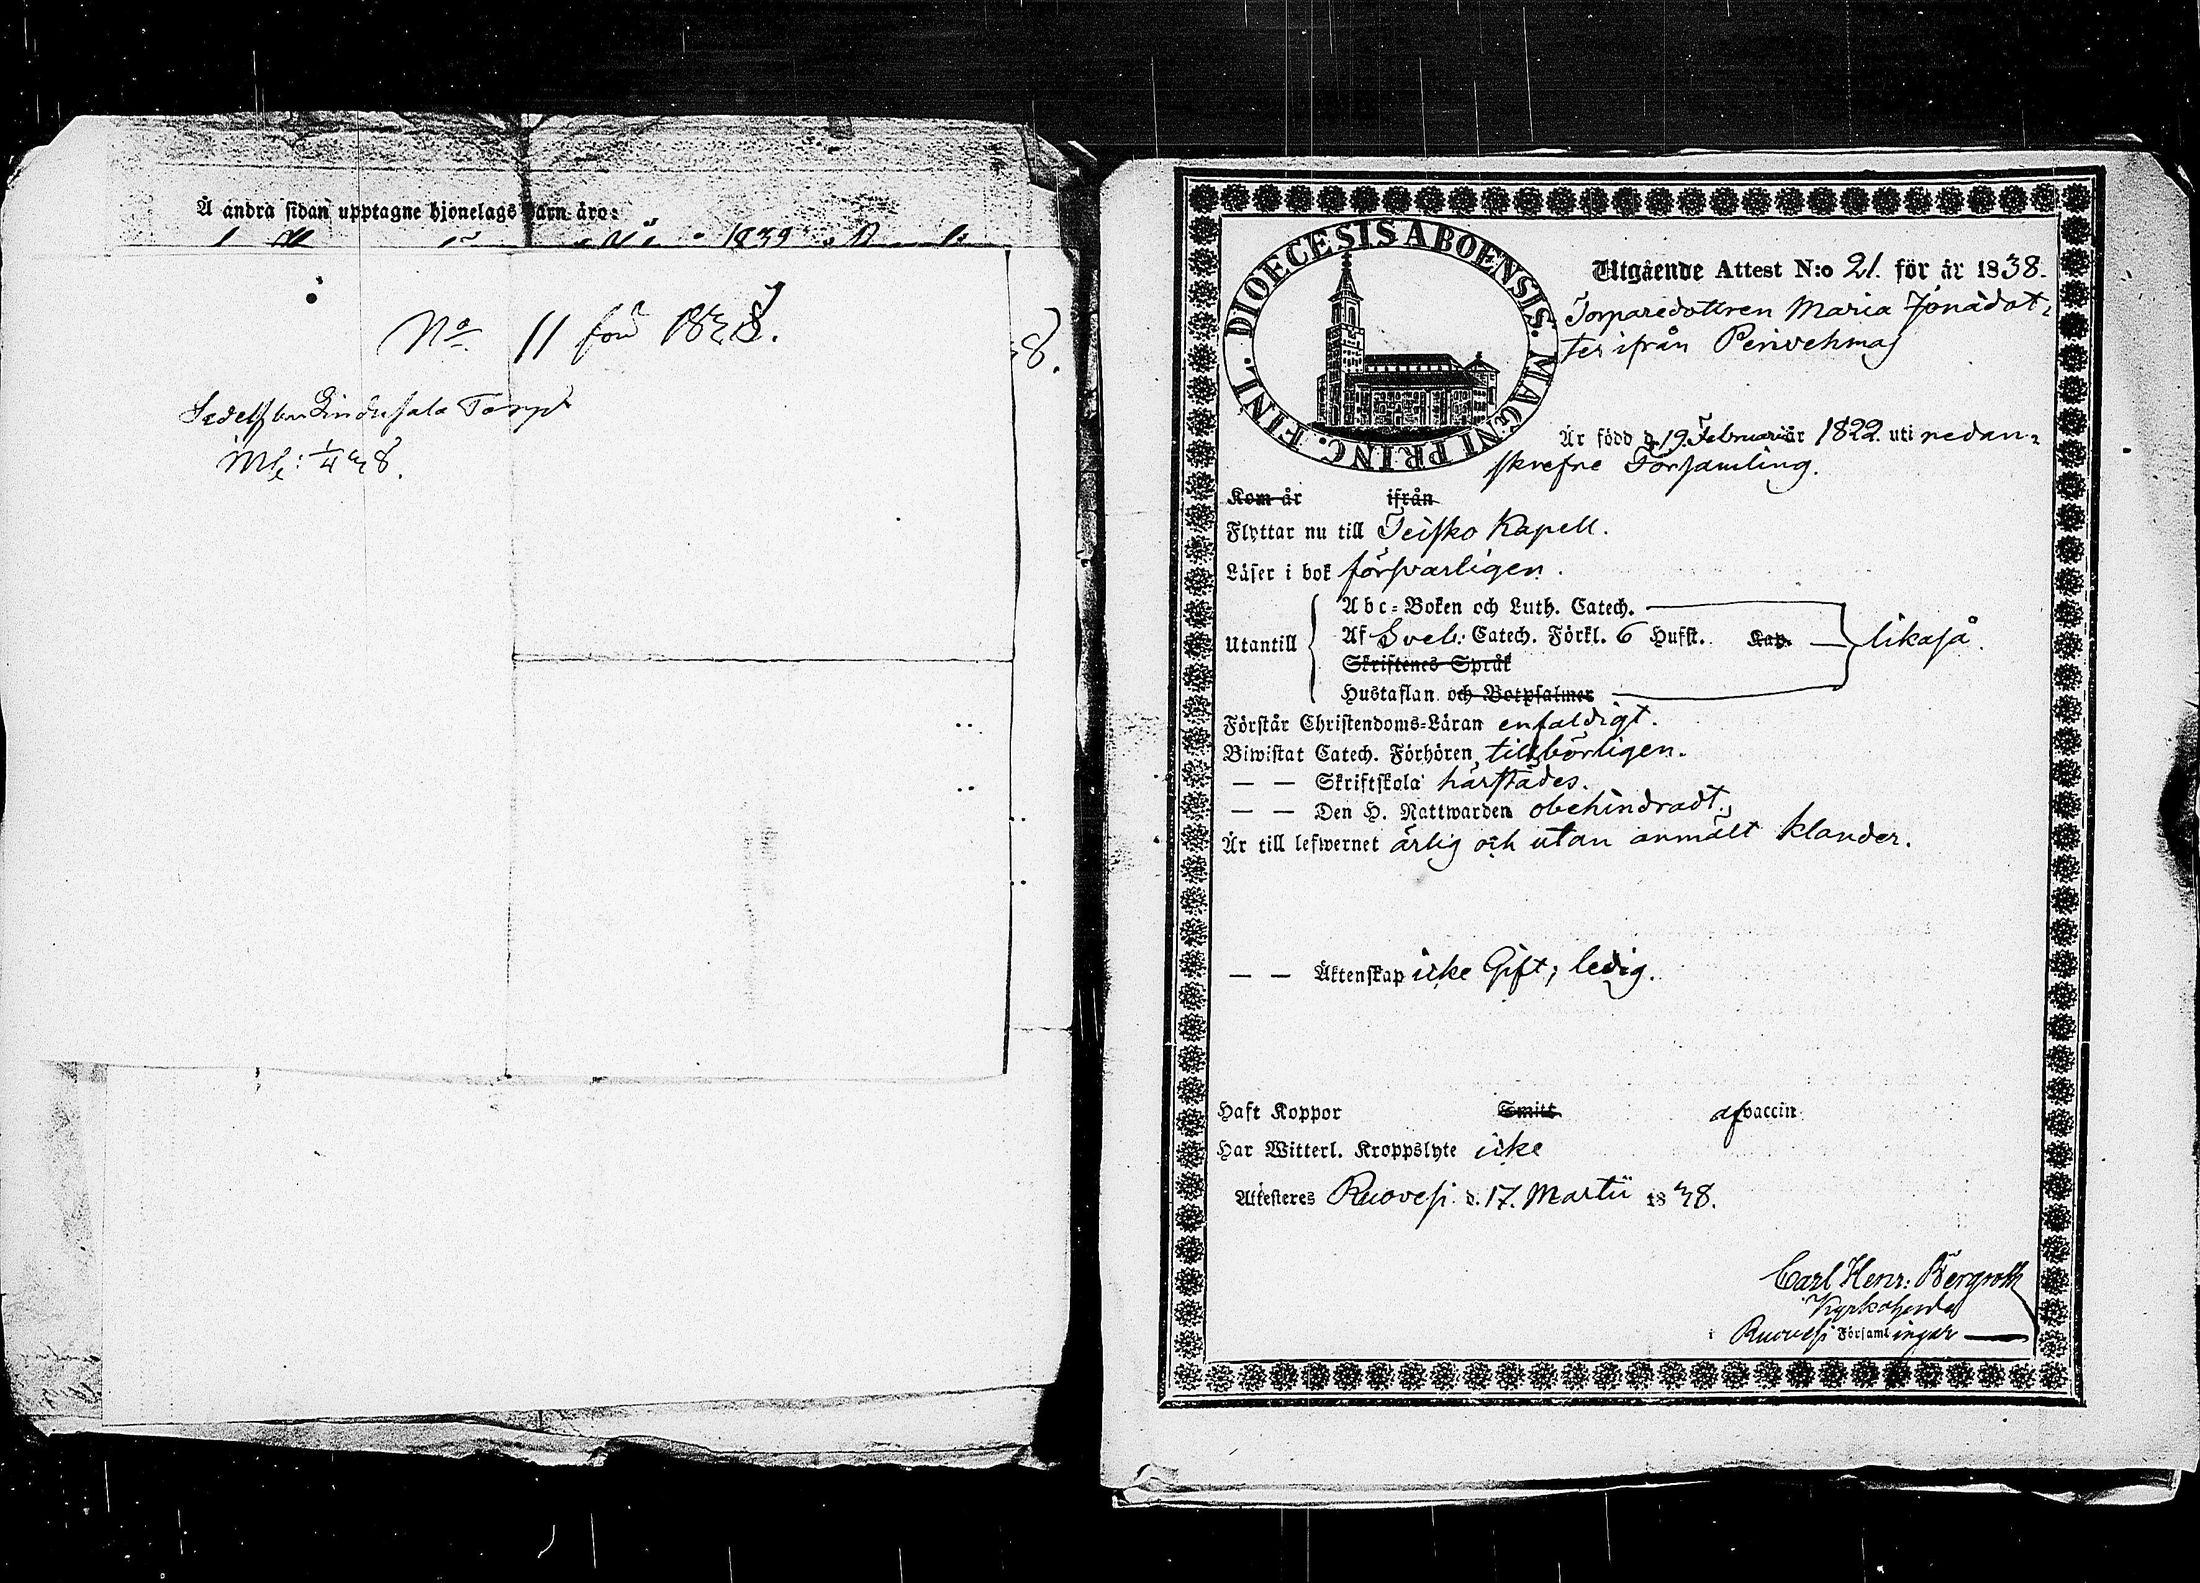 Å andra sidan upptagne hjonelags barn äro:
1839
No 11 för 1838.
8.
Torp
1/4 38.
DIOECESIS ABOENSIS. MAGNI PRINC. FINL.
Utgående Attest N:o 21. för år 1838.
Torparedottren Maria Jonädot-
ter ifrån Perivehmas
Är född d. 19. Februarii år 1822 uti nedan-
skrefne Församling.
Kom år ifrån
Flyttar nu till Teisko Kapell.
Läser i bok försvarligen.
Abc-Boken och Luth. Catech.
Utantill Af Sveb: Catech. Förkl. 6 Hufst. Kap. likaså.
Skriftenes Språk
Hustaflan och Botpsalmer
Förstår Christendoms-Läran enfaldigt.
Biwistat Catech. Förhören tillbörligen.
— — Skriftskola härstädes.
— — Den H. Nattwarden obehindradt.
Är till lefwernet ärlig och utan anmält klander.
— — Äktenskap icke Gift; ledig.
Haft Koppor Smitt. af vaccin
Har Witterl. Kroppslyte icke
Attesteres Ruovesi d. 17. Martii 1838.
Carl Henr: Bergroth
Kyrkoherde
i Ruovesi Församlingar